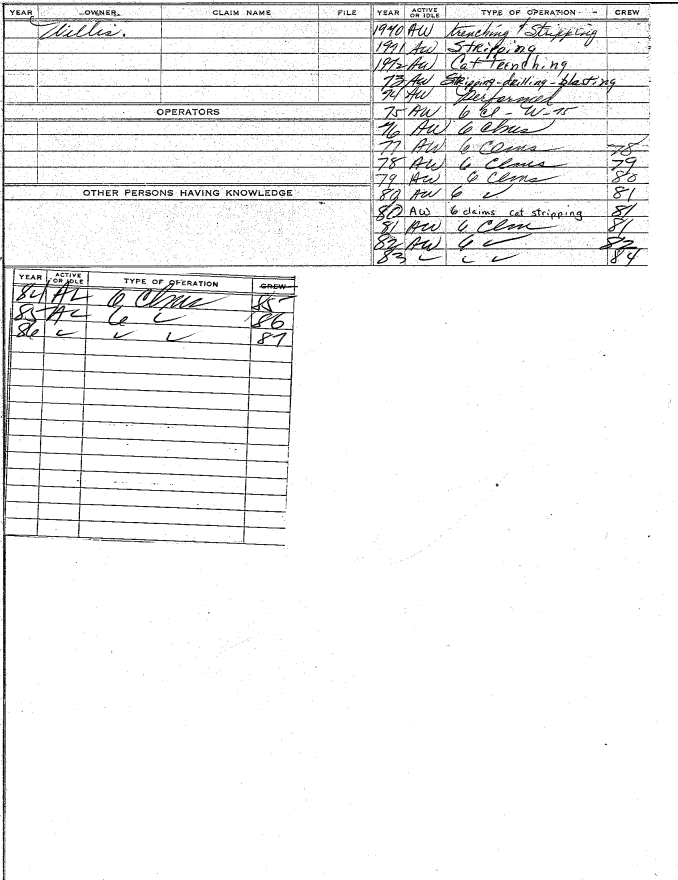 YEAR OWNER CLAIM NAME FILE
Willis.
OPERATORS
OTHER PERSONS HAVING KNOWLEDGE
YEAR ACTIVE OR IDLE TYPE OF OPERATION CREW
1970 AW trenching & Stripping
1971 AW Stripping
1972 AW Cat Trenching
73 AW Stripping-drilling-blasting
74 AW Performed
75 AW 6 Cl - W-75
76 AW 6 Clms
77 AW 6 Clms 78
78 AW 6 Clms 79
79 AW 6 Clms 80
80 AW 6 ✓ 81
80 AW 6 claims cat stripping 81
81 AW 6 Clm 81
82 AW 6 ✓ 82
83 ✓ ✓ ✓ 84
YEAR ACTIVE OR IDLE TYPE OF OPERATION CREW
84 AL 6 Clms 85
85 AL 6 ✓ 86
86 ✓ ✓ ✓ 87